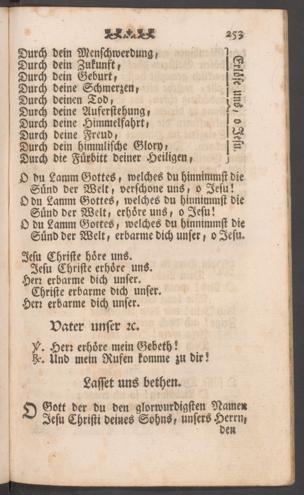 253
Durch dein Menschwerdung,
Durch dein Zukunft,
Durch dein Geburt,
Durch deine Schmerzen,
Durch deinen Tod,
Durch deine Auferstehung,
Durch deine Himmelfahrt,
Durch deine Freud,
Durch dein himmlische Glory,
Durch die Fürbitt deiner Heiligen,
Erlöse uns, o Jesu.
O du Lamm Gottes, welches du hinnimmst die
Sünd der Welt, verschone uns, o Jesu!
O du Lamm Gottes, welches du hinnimmst die
Sünd der Welt, erhöre uns, o Jesu!
O du Lamm Gottes, welches du hinnimmst die
Sünd der Welt, erbarme dich unser, o Jesu.
Jesu Christe höre uns.
Jesu Christe erhöre uns.
Herr erbarme dich unser.
Christe erbarme dich unser.
Herr erbarme dich unser.
Vater unser ꝛc.
℣. Herr erhöre mein Gebeth!
℟. Und mein Rufen komme zu dir!
Lasset uns bethen.
O Gott der du den glorwurdigsten Namen
Jesu Christi deines Sohns, unsers Herrn,
den